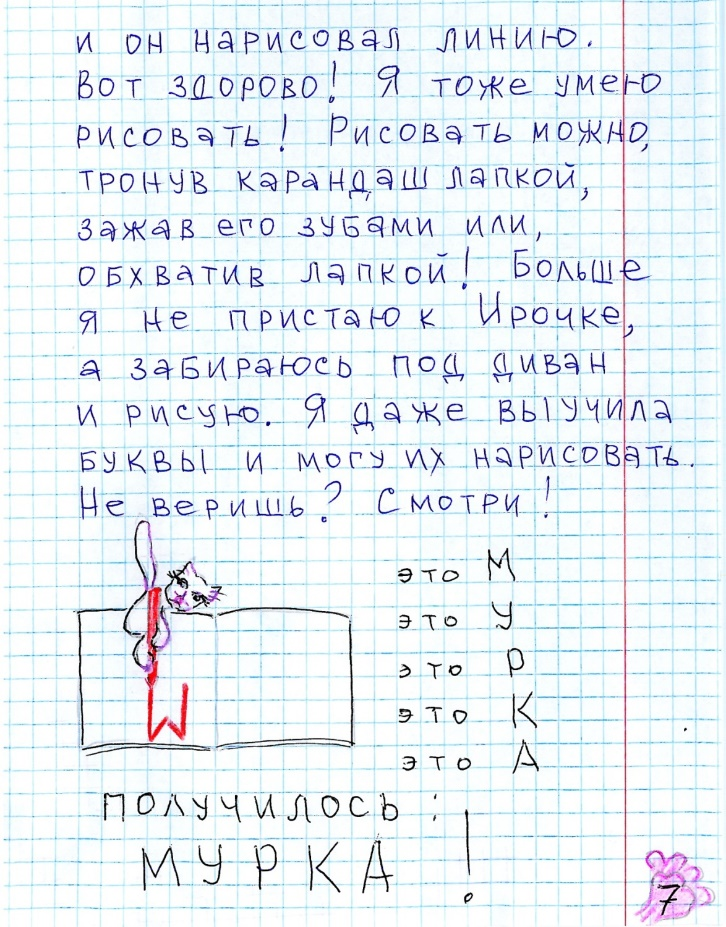 и он нарисовал линию.
Вот здорово! Я тоже умею
рисовать! Рисовать можно,
тронув карандаш лапкой,
зажав его зубами или,
обхватив лапкой! Больше
я не пристаю к Ирочке,
а забираюсь под диван
и рисую. Я даже выучила
буквы и могу их нарисовать.
Не веришь? Смотри!
это М
это У
это Р
это К
это А
М
получилось:
МУРКА!
7